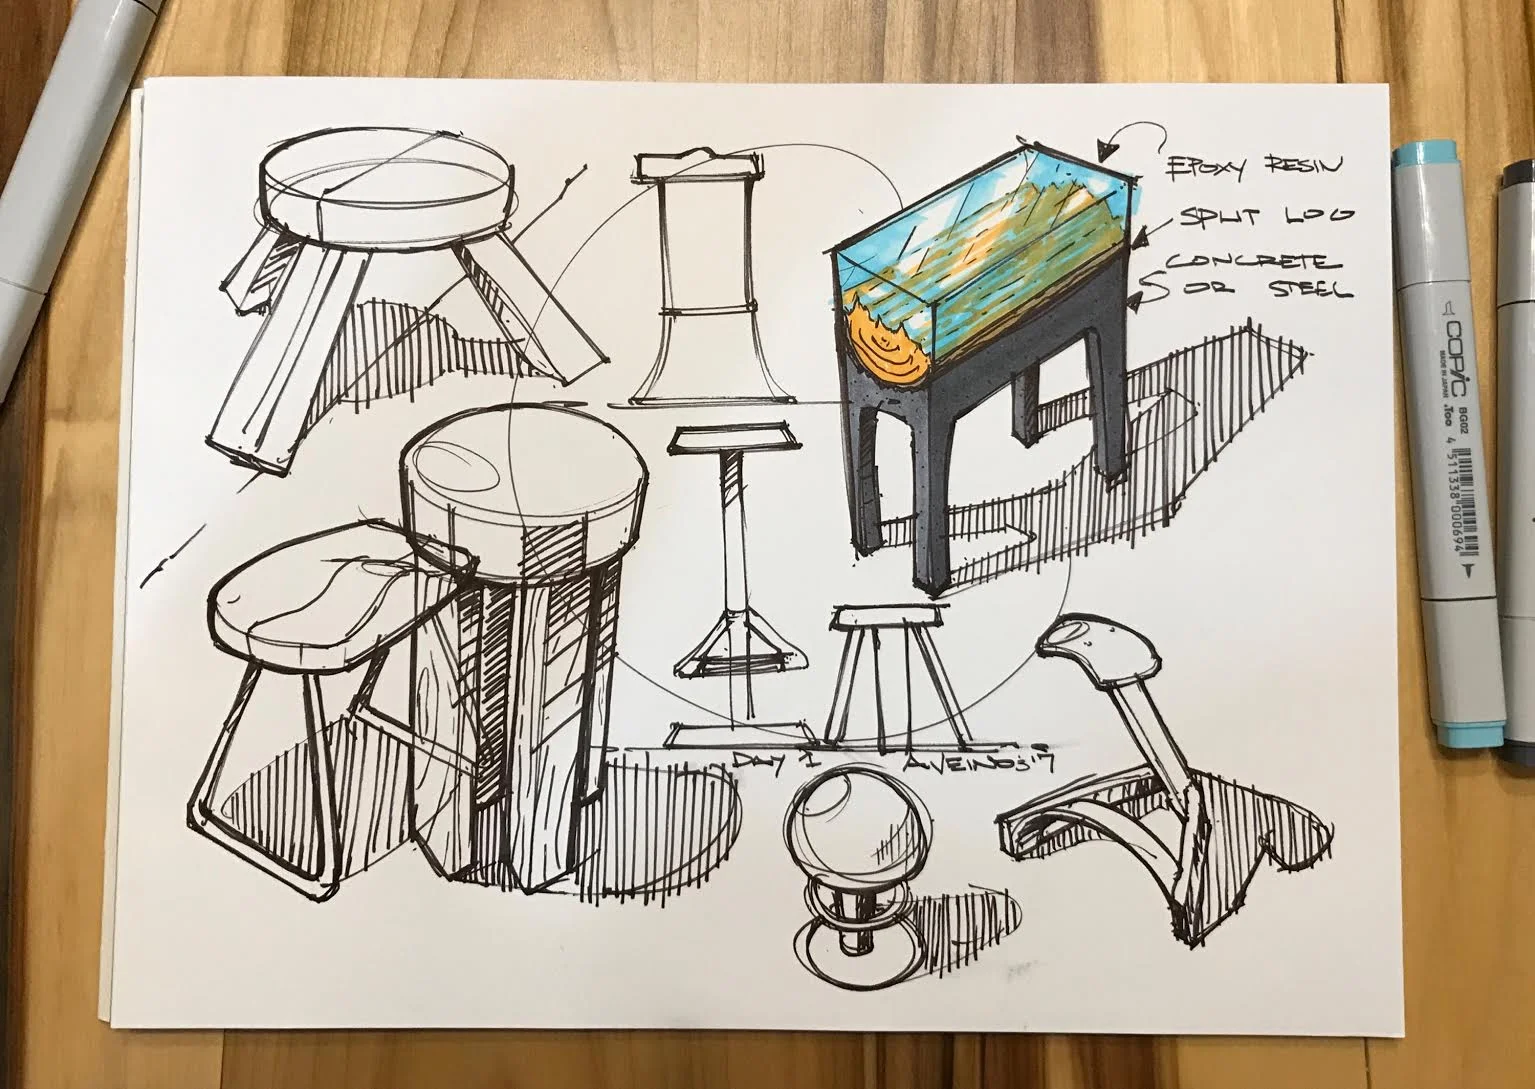 EPOXY RESIN
SPLIT LOG
CONCRETE
OR STEEL
DAY 1 AVEINOS'17
COPIC
MADE IN JAPAN
BG02
.Too
4 511338 000694